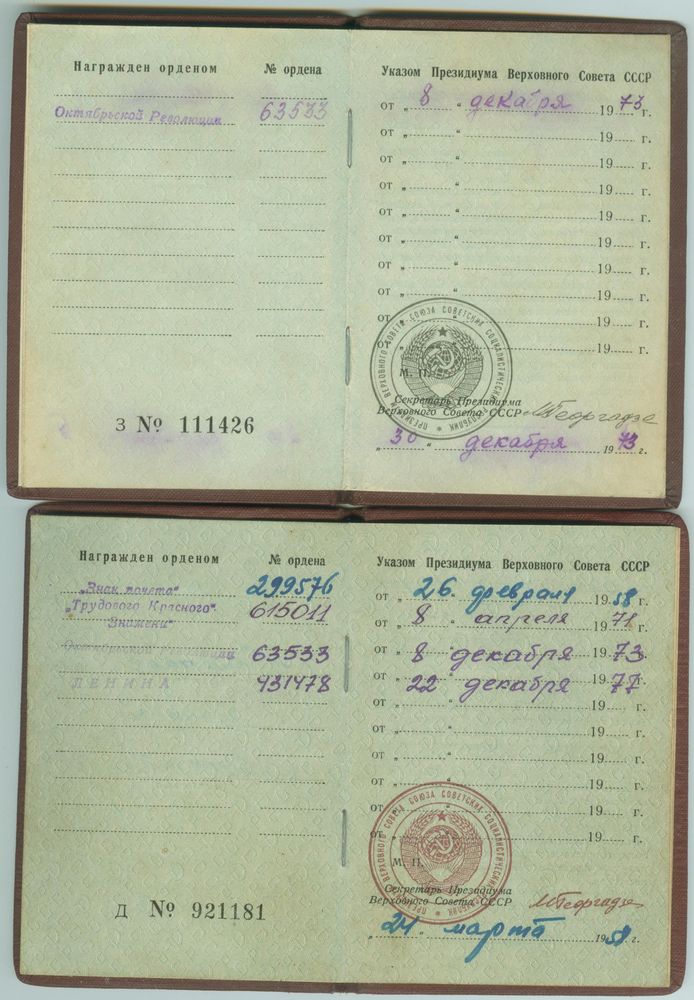 Награжден орденом № ордена Указом Президиума Верховного Совета СССР
Октябрьской Революции 63533 от „ 8 “ декабря 1973 г.
от „ “ 19 г.
от „ “ 19 г.
от „ “ 19 г.
от „ “ 19 г.
от „ “ 19 г.
от „ “ 19 г.
от „ “ 19 г.
от „ “ 19 г.
от „ “ 19 г.
ПРЕЗИДИУМ ВЕРХОВНОГО СОВЕТА СОЮЗА СОВЕТСКИХ СОЦИАЛИСТИЧЕСКИХ РЕСПУБЛИК
М. П.
Секретарь Президиума
Верховного Совета СССР МГеоргадзе
З № 111426
„ 30 “ декабря 1973 г.
Награжден орденом № ордена Указом Президиума Верховного Совета СССР
„Знак почета“ 299576 от „ 26. февраля 1958 г.
„Трудового Красного Знамени“ 615011 от „ 8 апреля 1971 г.
Октябрьской Революции 63533 от „ 8 декабря 1973 г.
ЛЕНИНА 431478 от „ 22 декабря 1977 г.
от „ “ 19 г.
от „ “ 19 г.
от „ “ 19 г.
от „ “ 19 г.
от „ “ 19 г.
ПРЕЗИДИУМ ВЕРХОВНОГО СОВЕТА СОЮЗА СОВЕТСКИХ СОЦИАЛИСТИЧЕСКИХ РЕСПУБЛИК
М. П.
Секретарь Президиума
Верховного Совета СССР МГеоргадзе
Д № 921181
„ 24 “ марта 1958 г.